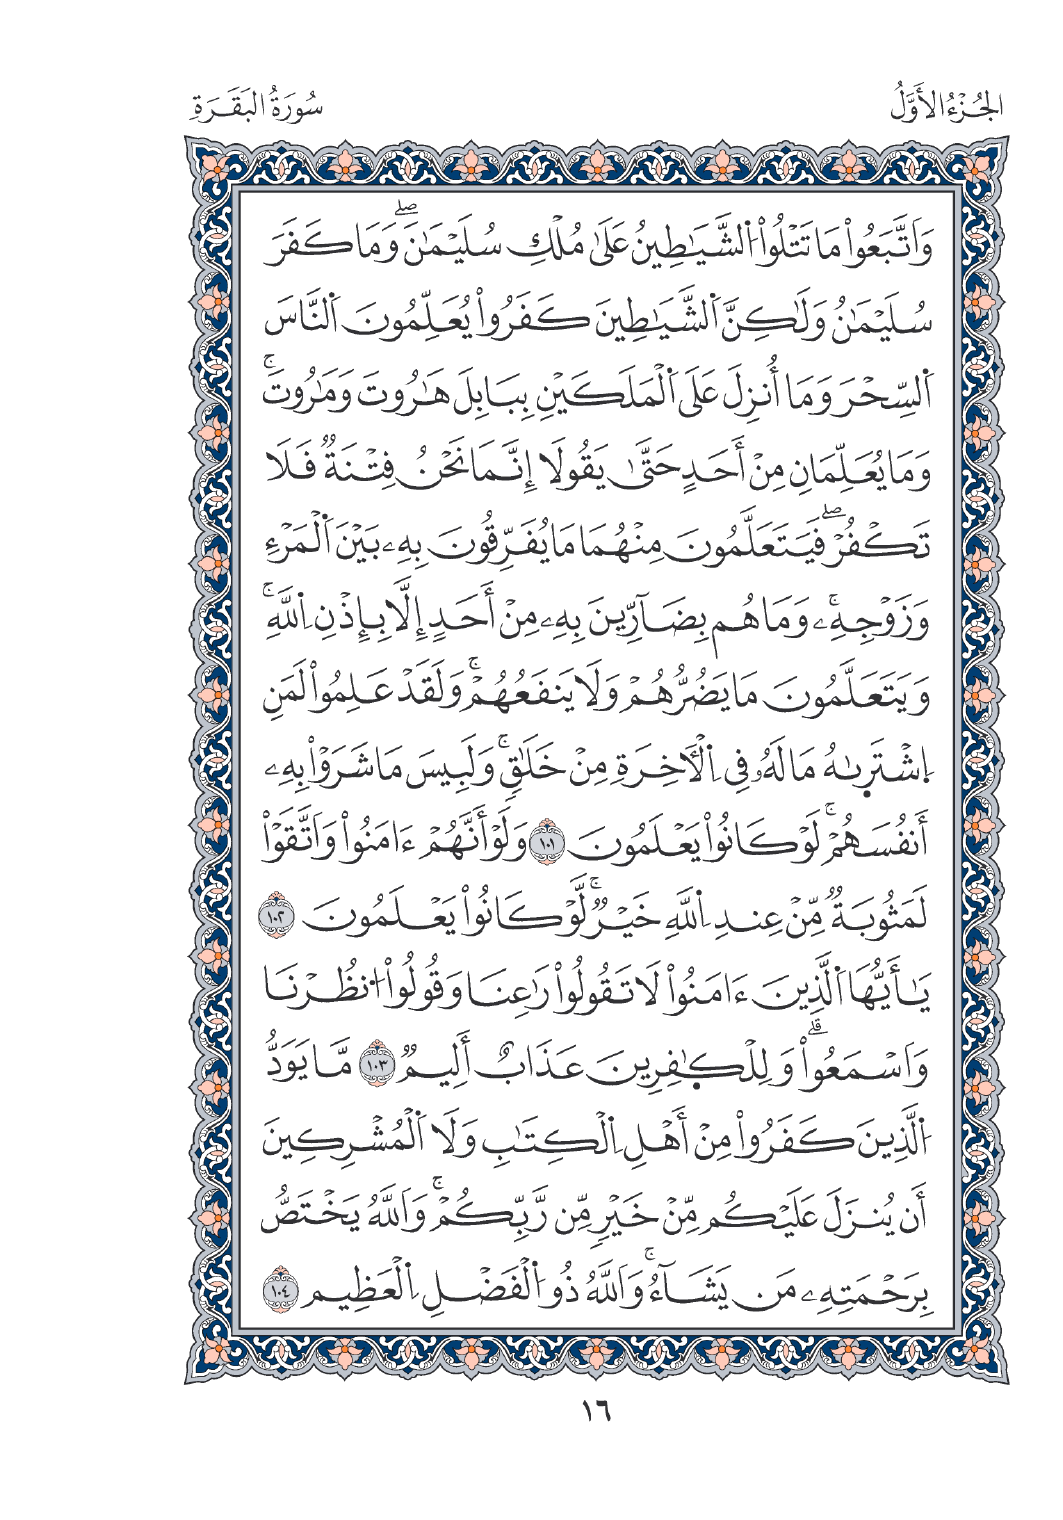 الجُزْءُ الأَوَّلُ
سُورَةُ البَقَرَةِ
وَاَتَّبَعُواْ مَا تَتْلُواْ اُ۬لشَّيَٰطِينُ عَلَىٰ مُلْكِ سُلَيْمَٰنَۖ وَمَا كَفَرَ
سُلَيْمَٰنُ وَلَٰكِنَّ اَ۬لشَّيَٰطِينَ كَفَرُواْ يُعَلِّمُونَ اَ۬لنَّاسَ
اَ۬لسِّحْرَ وَمَا أُنزِلَ عَلَى اَ۬لْمَلَكَيْنِ بِبَابِلَ هَٰرُوتَ وَمَٰرُوتَۚ
وَمَا يُعَلِّمَانِ مِنْ أَحَدٍ حَتَّىٰ يَقُولَا إِنَّمَا نَحْنُ فِتْنَةٞ فَلَا
تَكْفُرْۖ فَيَتَعَلَّمُونَ مِنْهُمَا مَا يُفَرِّقُونَ بِهِۦ بَيْنَ اَ۬لْمَرْءِ
وَزَوْجِهِۦۚ وَمَا هُم بِضَآرِّينَ بِهِۦ مِنْ أَحَدٍ إِلَّا بِإِذْنِ اِ۬للَّهِۚ
وَيَتَعَلَّمُونَ مَا يَضُرُّهُمْ وَلَا يَنفَعُهُمْۚ وَلَقَدْ عَلِمُواْ لَمَنِ
اِ۪شْتَر۪ىٰهُ مَا لَهُۥ فِي اِ۬لْأٓخِرَةِ مِنْ خَلَٰقٖۚ وَلَبِيسَ مَا شَرَوْاْ بِهِۦ
أَنفُسَهُمْۚ لَوْ كَانُواْ يَعْلَمُونَ ١٠١ وَلَوْ أَنَّهُمْ ءَامَنُواْ وَاَتَّقَوْاْ
لَمَثُوبَةٞ مِّنْ عِندِ اِ۬للَّهِ خَيْرٞۚ لَّوْ كَانُواْ يَعْلَمُونَ ١٠٢
يَٰأَيُّهَا اَ۬لَّذِينَ ءَامَنُواْ لَا تَقُولُواْ رَٰعِنَا وَقُولُواْ اُ۟نظُرْنَا
وَاَسْمَعُواْۗ وَلِلْكٰ۪فِرِينَ عَذَابٌ أَلِيمٞ ١٠٣ مَّا يَوَدُّ
اُ۬لَّذِينَ كَفَرُواْ مِنْ أَهْلِ اِ۬لْكِتَٰبِ وَلَا اَ۬لْمُشْرِكِينَ
أَن يُنزَلَ عَلَيْكُم مِّنْ خَيْرٖ مِّن رَّبِّكُمْۚ وَاَللَّهُ يَخْتَصُّ
بِرَحْمَتِهِۦ مَن يَشَآءُۚ وَاَللَّهُ ذُو اُ۬لْفَضْلِ اِ۬لْعَظِيمِ ١٠٤
١٦